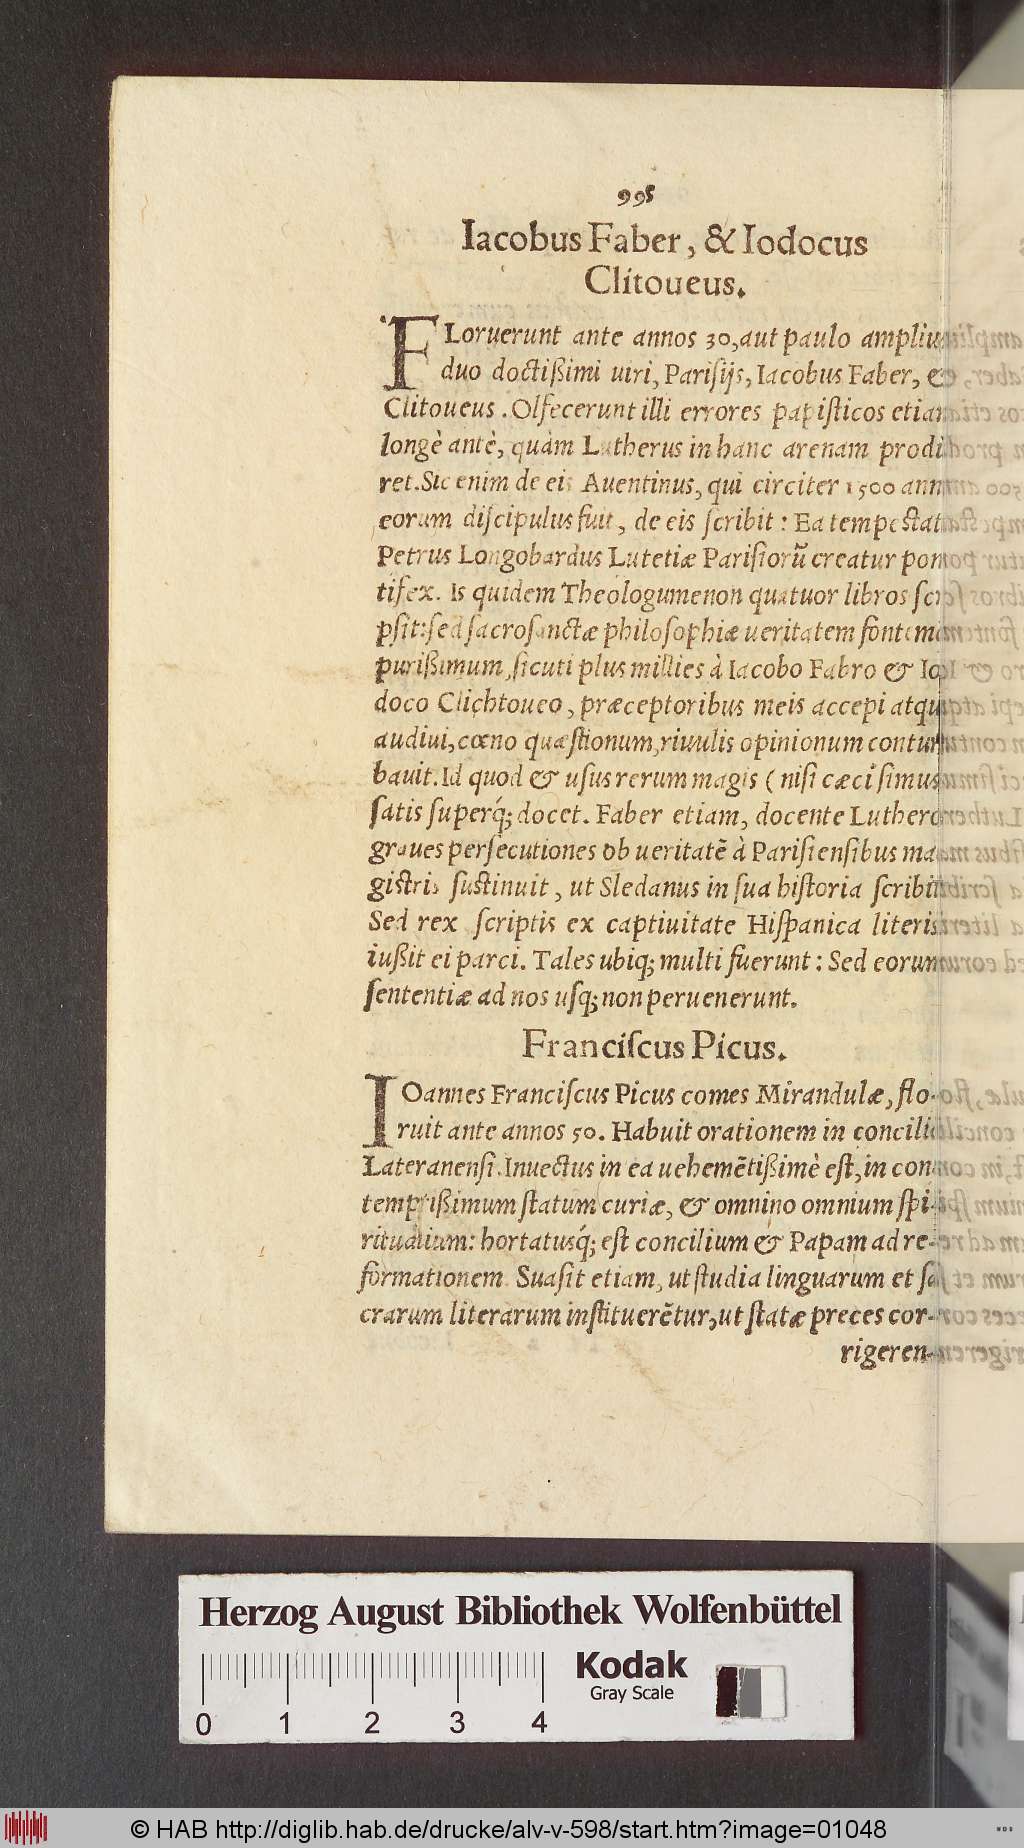 995
Iacobus Faber, & Iodocus
Clitoueus.
FLoruerunt ante annos 30, aut paulo amplius
duo doctißimi uiri, Parisijs, Iacobus Faber, &
Clitoueus. Olfecerunt illi errores papisticos etiam
longè antè, quàm Lutherus in hanc arenam prodi
ret. Sic enim de eis Auentinus, qui circiter 1500 annum
eorum discipulus fuit, de eis scribit: Ea tempestate
Petrus Longobardus Lutetiæ Parisiorũ creatur pon
tifex. Is quidem Theologumenon quatuor libros scri
psit: sed sacrosanctæ philosophiæ ueritatem fontem
purißimum, sicuti plus millies à Iacobo Fabro & Io
doco Clichtoueo, præceptoribus meis accepi atque
audiui, cœno quæstionum, riuulis opinionum contur
bauit. Id quod & usus rerum magis (nisi cæci simus
satis superq́; docet. Faber etiam, docente Luthero
graues persecutiones ob ueritatẽ à Parisiensibus ma
gistris sustinuit, ut Sledanus in sua historia scribit
Sed rex scriptis ex captiuitate Hispanica literis
iußit ei parci. Tales ubiq; multi fuerunt: Sed eorum
sententiæ ad nos usq; non peruenerunt.
Franciscus Picus.
IOannes Franciscus Picus comes Mirandulæ, flo-
ruit ante annos 50. Habuit orationem in concilio
Lateranensi. Inuectus in ea uehemẽtißimè est, in con
temptißimum statum curiæ, & omnino omnium spi-
ritualium: hortatusq́; est concilium & Papam ad re-
formationem. Suasit etiam, ut studia linguarum et sa
crarum literarum instituerẽtur, ut statæ preces cor-
rigeren-
Herzog August Bibliothek Wolfenbüttel
Kodak
Gray Scale
0 1 2 3 4
© HAB http://diglib.hab.de/drucke/alv-v-598/start.htm?image=01048